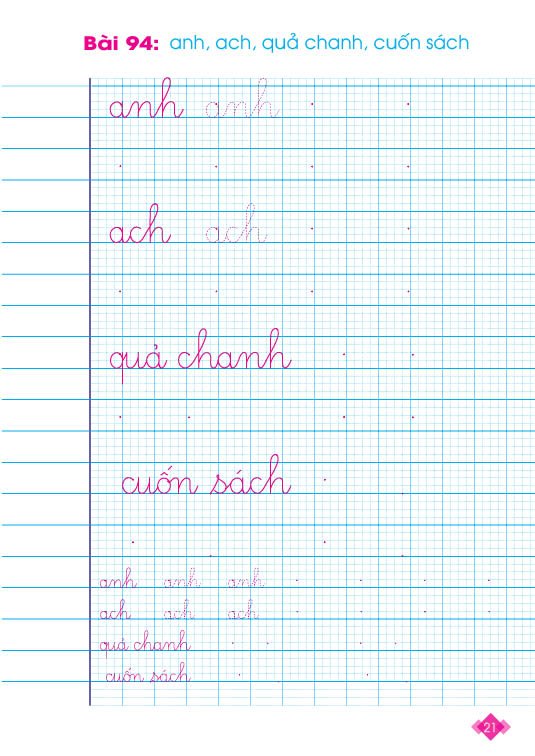 Bài 94: anh, ach, quả chanh, cuốn sách
anh anh
ach ach
quả chanh
cuốn sách
anh anh anh
ach ach ach
quả chanh
cuốn sách
21